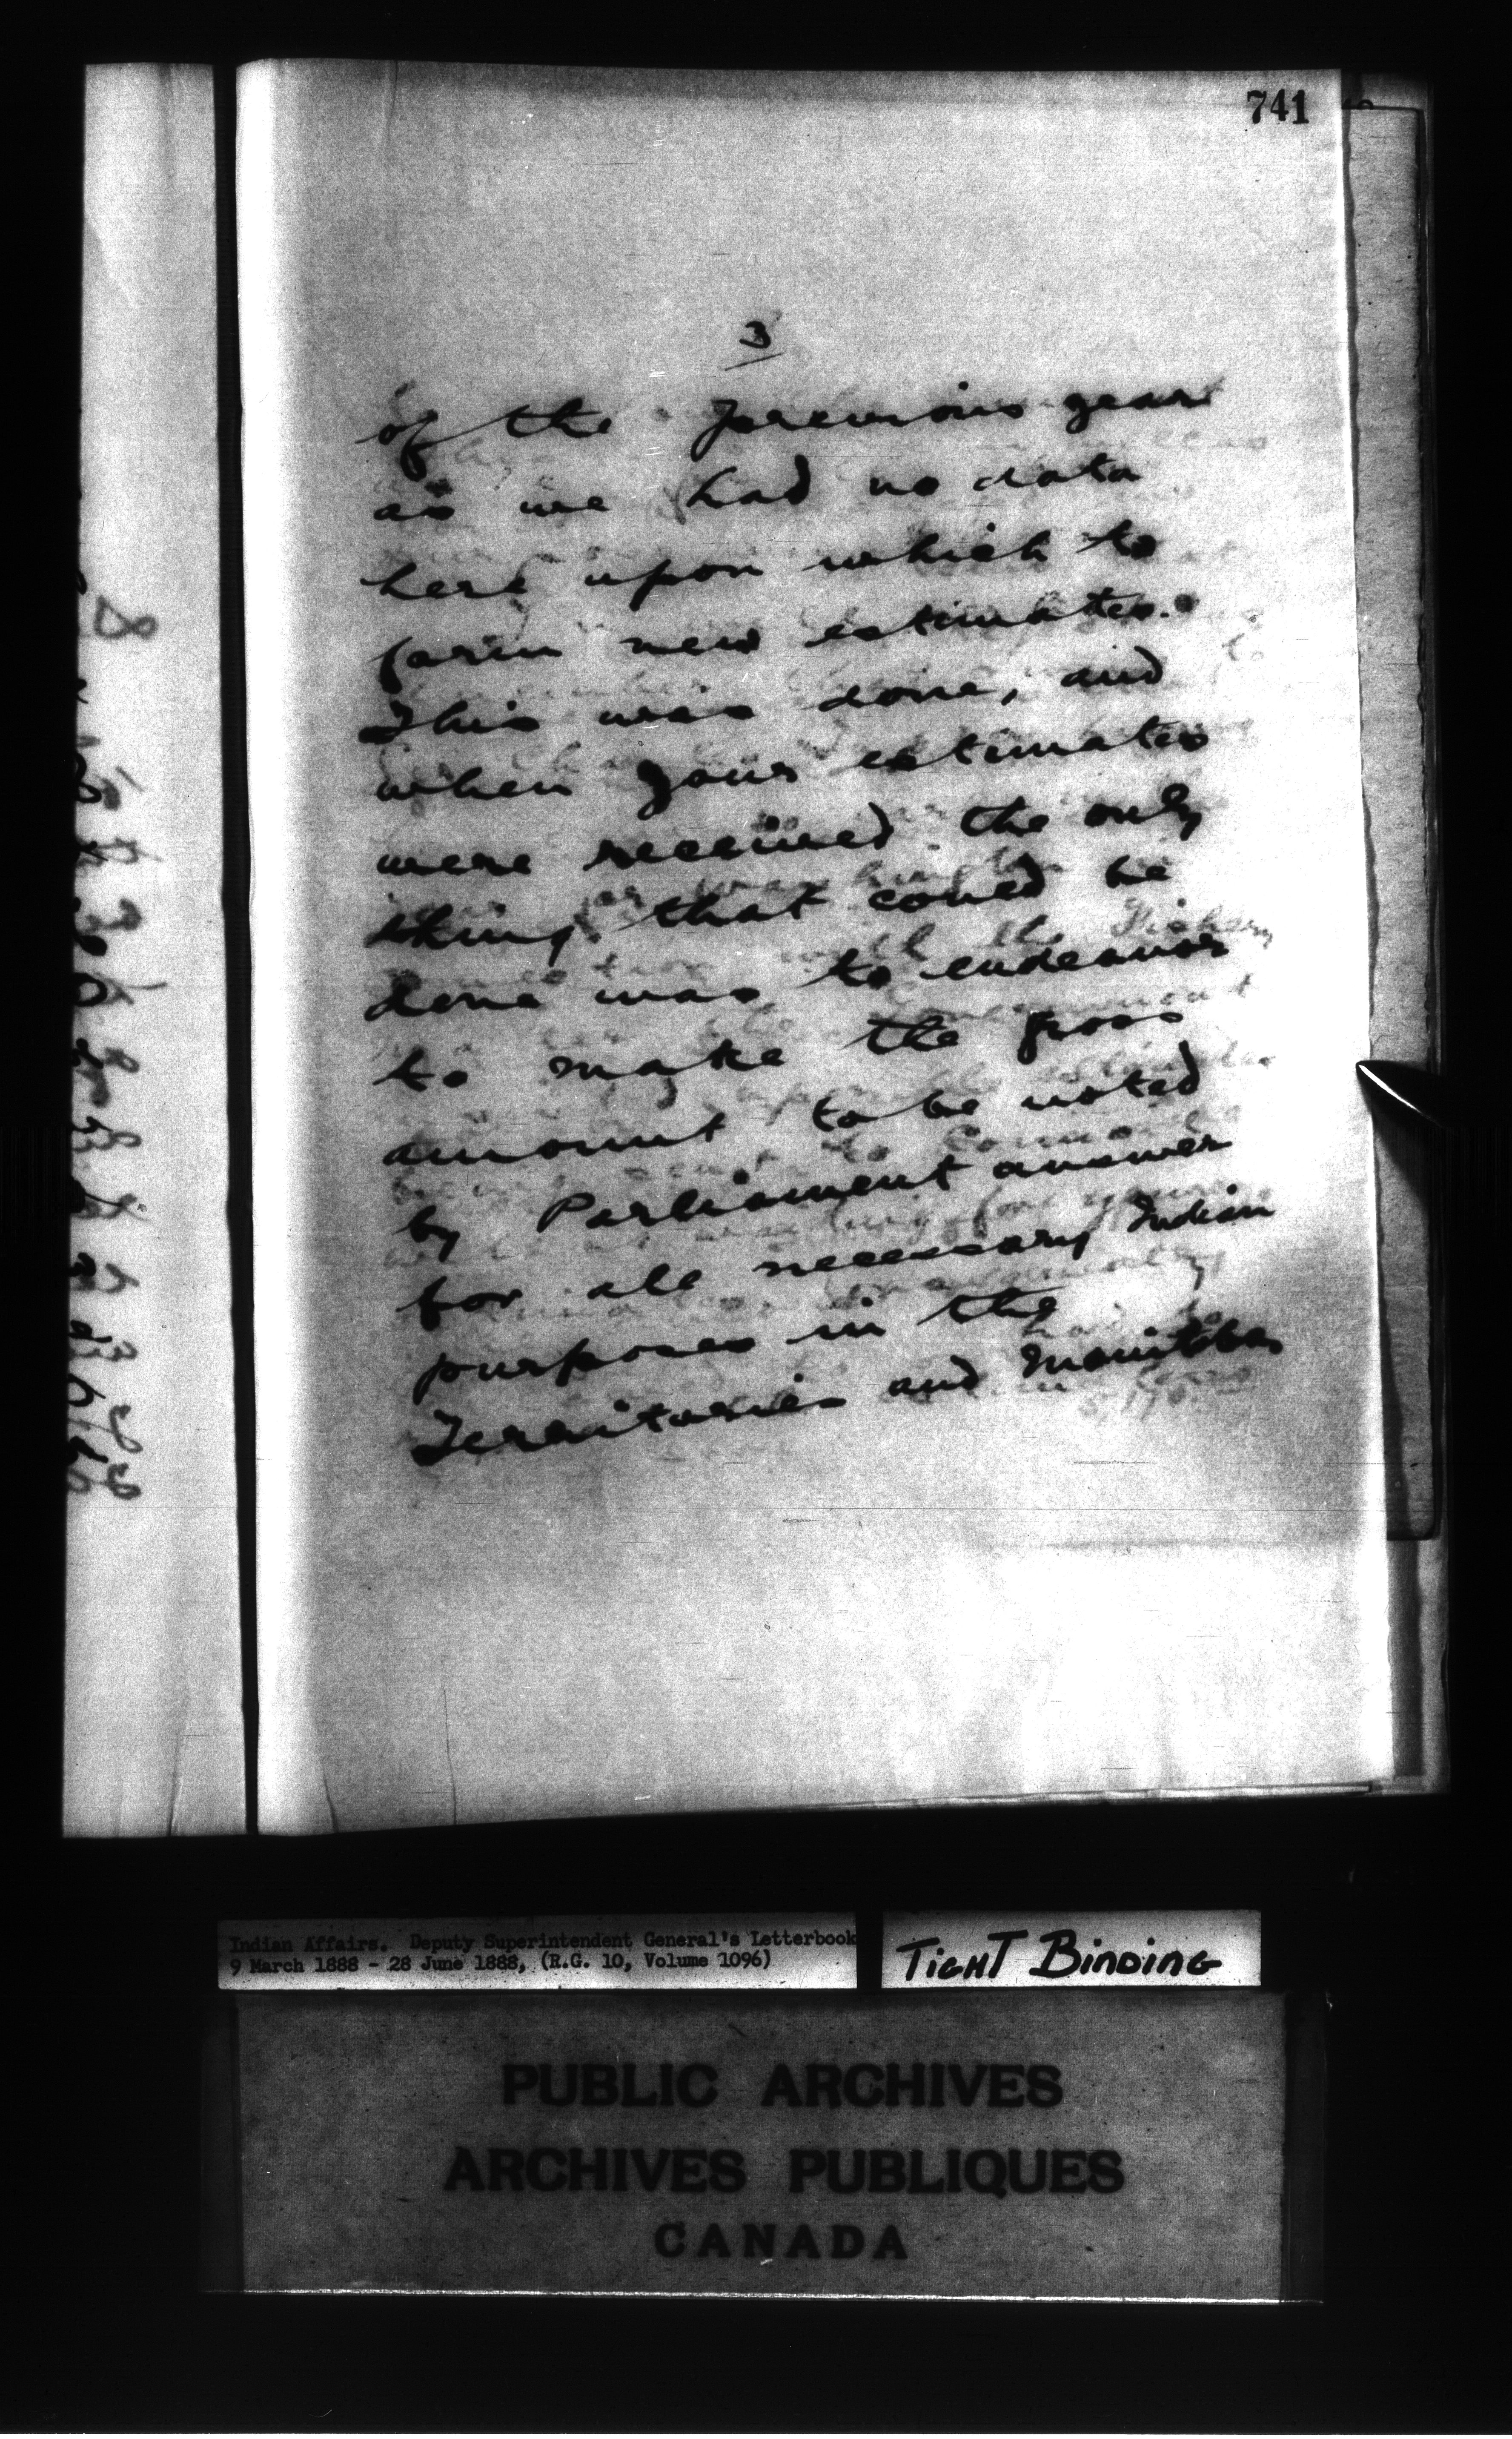 741
3
of the previous year
as we had no data
here upon which to
form new estimates.
This was done, and
when your estimates
were received the only
thing that could be
done was to endeavor
to make the gross
amount to be voted
by Parliament answer
for all necessary Indian
purposes in the
Territories and Manitoba
Indian Affairs. Deputy Superintendent General's Letterbook
9 March 1888 - 28 June 1888, (R.G. 10, Volume 1096)
TIGHT BINDING
PUBLIC ARCHIVES
ARCHIVES PUBLIQUES
CANADA